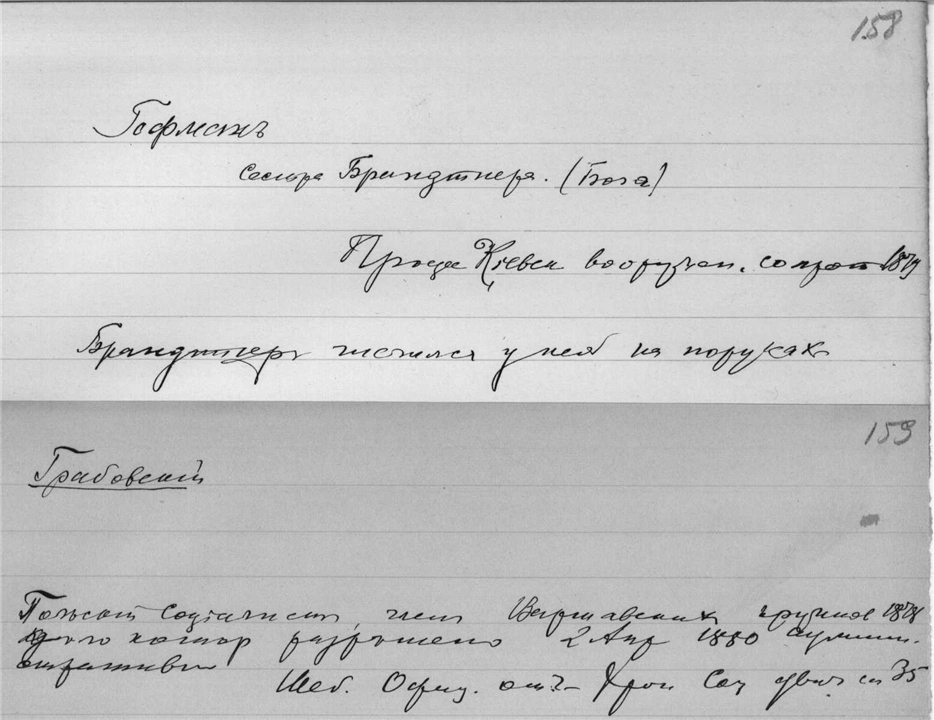 158
Гофманъ
Сестра Брандтнера. (Бога)
Процес Кіевск вооружен. сопрот 1879
Брандтнеръ числился у ней на порукахъ
159
Грабовский
Польский Социалист, член Варшавских кружков 1878
дело котор разрешено 2 Апр 1880 админи-
стративн
Шеб. Офиц. отч. Хрон Соц движ ст 35